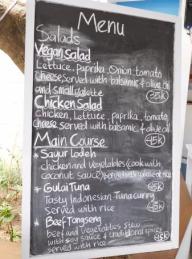 Menu
Salads
Vegan Salad
Lettuce, paprika, onion, tomato
cheese served with balsamic & olive oil
and small galette 35K
Chicken Salad
Chicken, Lettuce, paprika, tomato
cheese served with balsamic & olive oil
Main Course 45K
* Sayur Lodeh
chicken and vegetables (cook with
coconut sauce) served with rice
* Gulai Tuna 45K
Tasty Indonesian Tuna curry
served with rice
* Beef Tongseng
Beef and Vegetables stew
with soy sauce & traditional spices
served with rice